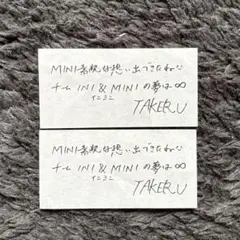 MINI素敵な想い出できたね♡
チーム INI & MINI の夢は∞
イニミニ
TAKERU
MINI素敵な想い出できたね♡
チーム INI & MINI の夢は∞
イニミニ
TAKERU